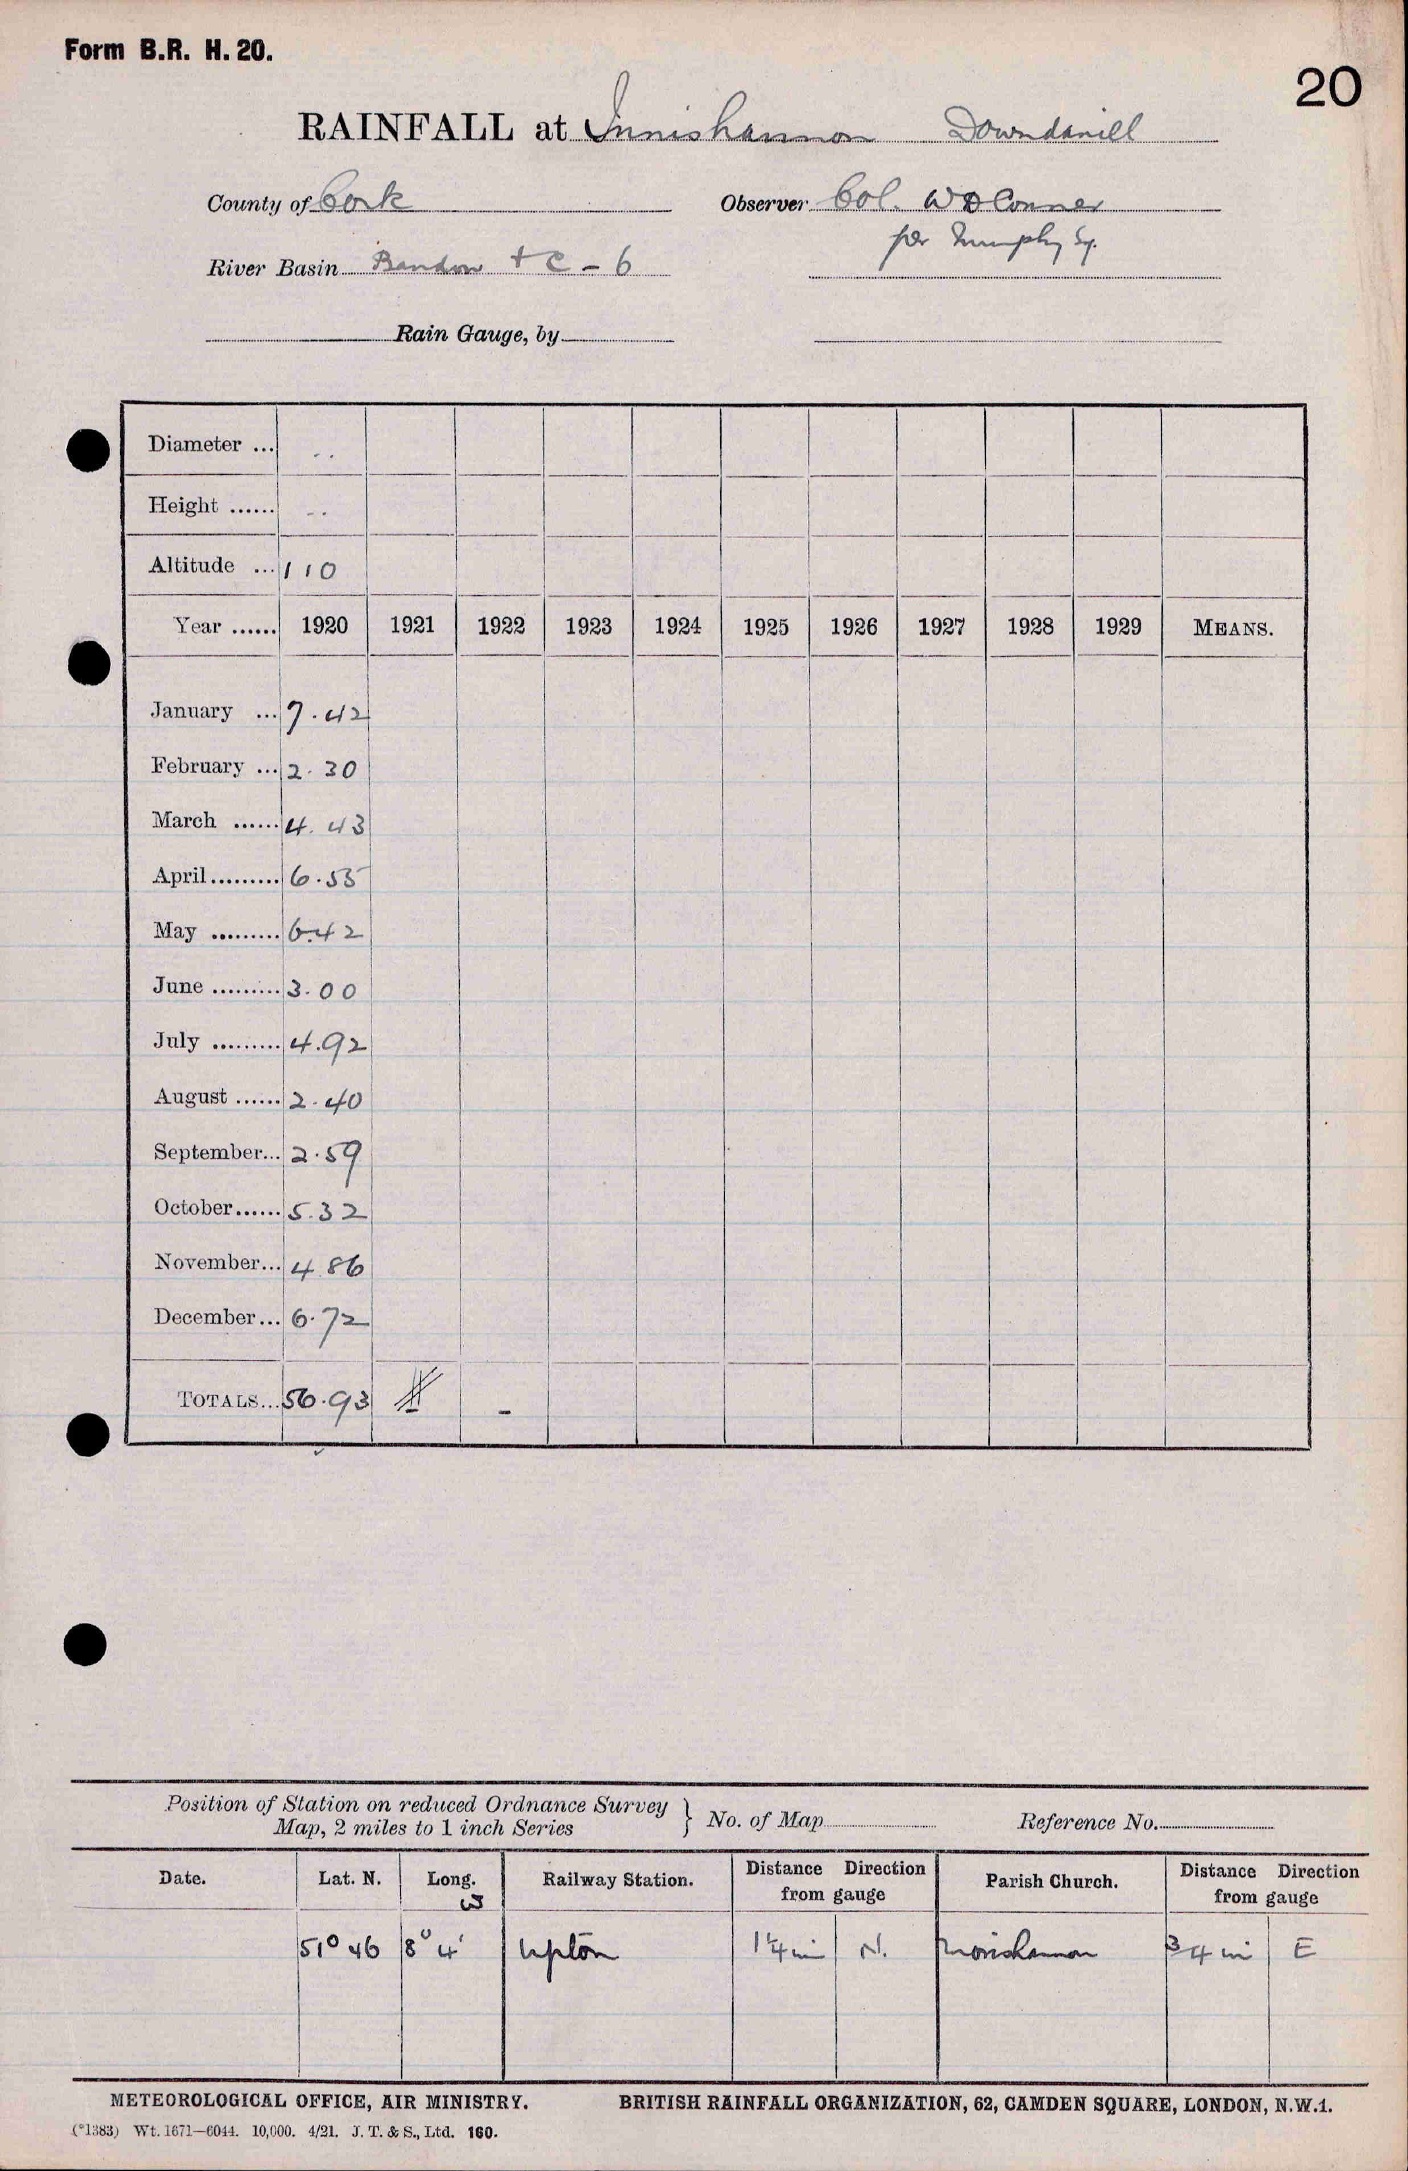 Form B.R. H. 20.
20
RAINFALL at Innishannon Downdaniell
County of Cork Observer Col. W D Conner
per Murphy Sq.
River Basin Bandon + C - 6
Rain Gauge, by
Diameter ... - -
Height ...... - -
Altitude ... 110
Year ...... 1920 1921 1922 1923 1924 1925 1926 1927 1928 1929 MEANS.
January ... 7.42
February ... 2.30
March ...... 4.43
April ......... 6.55
May ......... 6.42
June ......... 3.00
July ......... 4.92
August ...... 2.40
September... 2.59
October...... 5.32
November... 4 86
December... 6.72
TOTALS... 56.93 -
Position of Station on reduced Ordnance Survey
Map, 2 miles to 1 inch Series } No. of Map Reference No.
Date. Lat. N. Long. W Railway Station. Distance Direction from gauge Parish Church. Distance Direction from gauge
51° 46 8° 4' Upton 1 1/4 mi N. Innishannon 3/4 mi E
METEOROLOGICAL OFFICE, AIR MINISTRY. BRITISH RAINFALL ORGANIZATION, 62, CAMDEN SQUARE, LONDON, N.W.1.
(*1383) Wt. 1671—6044. 10,000. 4/21. J. T. & S., Ltd. 160.